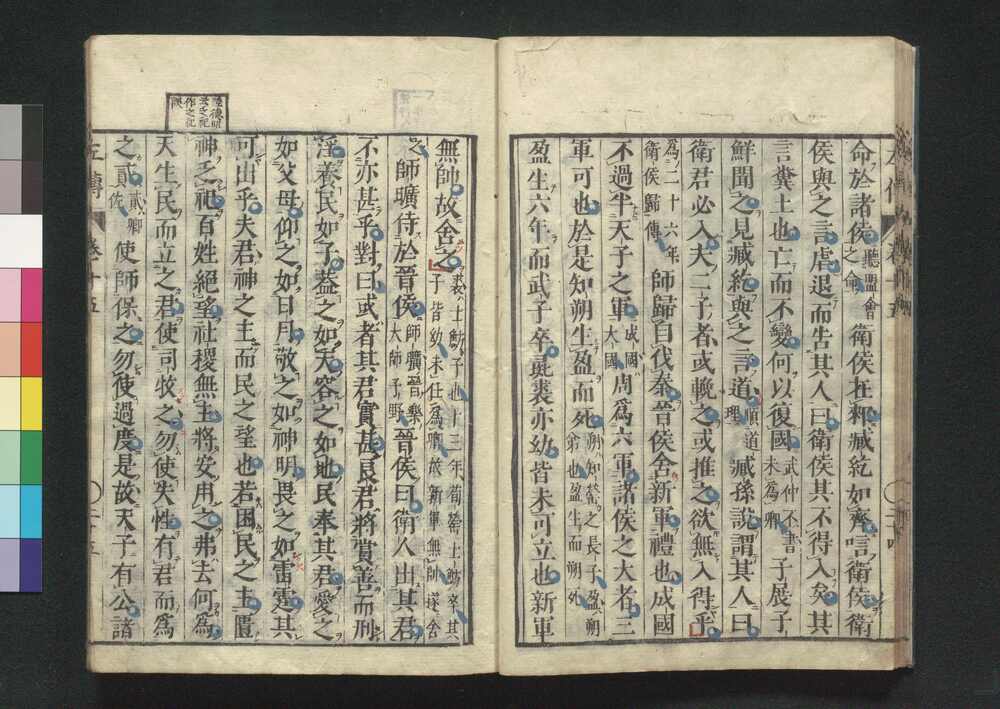 命於諸侯聽盟會之命衛侯在郲臧紇如齊唁衛侯衛
侯與之言虐退而告其人曰衛侯其不得入矣其
言糞土也亡而不變何以復國武仲不書未為卿子展子
鮮聞之見臧紇與之言道順道理臧孫說謂其人曰
衛君必入夫二子者或輓之或推之欲無入得乎
為二十六年衛侯歸傳師歸自伐秦晉侯舍新軍禮也成國
不過半天子之軍成國大國周為六軍諸侯之大者三
軍可也於是知朔生盈而死朔知罃之長子盈朔
盈生六年而武子卒彘裘亦幼皆未可立也新軍
無帥故舍之裘士魴子也十三年荀罃士魴卒其子皆幼未任為卿故新軍無帥遂舍
之師曠侍於晉侯師曠晉樂大師子野晉侯曰衛人出其君
不亦甚乎對曰或者其君實甚良君將賞善而刑
淫養民如子蓋之如天容之如地民奉其君愛之
如父母仰之如日月敬之如神明畏之如雷霆其
可出乎夫君神之主而民之望也若困民之主匱
神乏祀百姓絕望社稷無主將安用之弗去何為
天生民而立之君使司牧之勿使失性有君而為
之貳貳卿佐使師保之勿使過度是故天子有公諸
左傳
卷十五